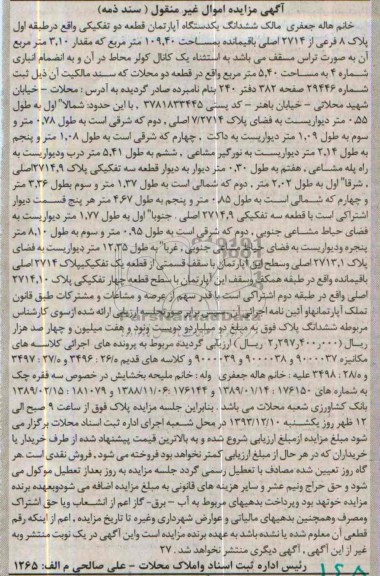 آگهی مزایده اموال غیر منقول ( سند ذمه)
خانم هاله جعفری مالک ششدانگ یکدستگاه آپارتمان قطعه دو تفکیکی واقع درطبقه اول
پلاک ۸ فرعی از ۲۷۱۴ اصلی باقیمانده بمساحت ۱۰۹،۴۰ متر مربع که مقدار ۳،۱۰ متر مربع
آن به صورت تراس مسقف می باشد به استثناء یک کانال کولر محاط در آن و به انضمام انباری
شماره ۴ به مساحت ۵،۴۰ متر مربع واقع در قطعه دو محلات که سند مالکیت آن ذیل ثبت
۲۹۴۴۶ صفحه ۳۸۲ دفتر ۲۴۰ بنام نامبرده صادر گردیده به آدرس : محلات - خیابان
شهید محلاتی - خیابان باهنر - کد پستی ۳۷۸۱۸۳۳۴۴۵ ، با این حدود: شمالا" اول به طول
۰،۵۵ متر دیواریست به فضای پلاک ۷/۲۷۱۴ اصلی ، دوم که شرقی است به طول ۰،۷۸ متر و
سوم به طول ۱،۰۹ متر دیواریست به داکت ، چهارم که شرقی است به طول ۱،۰۸ متر و پنجم
به طول ۲،۱۴ متر دیواریست به نورگیر مشاعی ، ششم به طول ۵،۴۱ متر درب ودیواریست به
راه پله مشاعی ، هفتم به طول ۰،۳۰ متر دیوار به دیوار قطعه سه تفکیکی پلاک ۲۷۱۴،۹اصلی
، شرقا" اول به طول ۲،۰۲ متر ، دوم که شمالی است به طول ۱،۳۷ متر و سوم بطول ۳،۳۶ متر
و چهارم که شمالی است به طول ۰،۸۵ متر و پنجم به طول ۴،۶۷ متر هر پنج قسمت دیوار
اشتراکی است با قطعه سه تفکیکی ۲۷۱۴،۹ اصلی . جنوبا" اول به طول ۱،۷۷ متر دیواریست به
فضای حیاط مشاعی جنوبی ، دوم که شرقی است به طول ۰،۹۵ متر و سوم به طول ۸،۱۰ متر
پنجره ودیواریست به فضای حیاط مشاعی جنوبی ، غربا" به طول ۱۲،۳۵ متر دیواریست به فضای
پلاک ۲۷۱۳،۱ اصلی وسطح این آپارتمان با سقف قسمتی از قطعه یک تفکیکی پلاک ۲۷۱۴ اصلی
باقیمانده واقع در طبقه همکف وسقف این آپارتمان با سطح قطعه چهار تفکیکی پلاک ۲۷۱۴،۱۰
اصلی واقع در طبقه دوم اشتراکی است با قدر سهم از عرصه و مشاعات و مشترکات طبق قانون
تملک آپارتمانها و آئین نامه اجرائی آن
مربوطه ششدانگ پلاک فوق به مبلغ دو میلیارد و دویست ونود و هفت میلیون و چهار صد هزار
ریال (۲،۲۹۷،۴۰۰،۰۰۰ ریال ) ارزیابی گردیده مربوط به پرونده های اجرائی کلاسه های
مکانیزه ۹۰۰۰۰۳۷ و ۹۰۰۰۰۳۸ و ۹۰۰۰۰۳۹ و کلاسه های قدیم ۲۶/ه: ۳۴۹۶ و ۲۷/ه: ۳۴۹۷
و ۲۸/ه: ۳۴۹۸ علیه : خانم هاله جعفری وله : خانم ملیحه بخشایش در خصوص سه فقره چک
به شماره های ۱۷۶۱۵۰ : ۱۳۸۹/۰۱/۱۴ ۱۷۶۱۴۴ : ۱۳۸۸/۱۱/۰۶ ۱۸۱۰۷۹ : ۱۳۸۹/۰۲/۱۵
بانک کشاورزی شعبه محلات می باشد . بنابراین جلسه مزایده پلاک فوق از ساعت ۹ صبح الی
۱۲ ظهر روز یکشنبه ۱۳۹۳/۱۲/۱۰ در محل شعبه اجرای اداره ثبت اسناد محلات برگزار می
شود مبلغ مزایده ازمبلغ ارزیابی شروع شده و به بالاترین قیمت پیشنهاد شده از طرف خریدار یا
خریداران که در هر حال از مبلغ ارزیابی کمتر نخواهد بود فروخته می شود ، فروش نقدی است .هر
گاه روز تعیین شده مصادف با تعطیل رسمی گردد جلسه مزایده به روز بعداز تعطیل موکول می
شود و حق حراج ونیم عشر و سایر هزینه های قانونی به مبلغ مزایده اضافه می شودوبعهده برنده
مزایده خوتهد بود وپرداخت بدهیهای مربوط به آب - برق- گاز اعم از انشعاب ویا حق اشتراک
ومصرف وهمچنین بدهیهای مالیاتی و عوارض شهرداری وغیره تا تاریخ مزایده ، اعم از اینکه رقم
قطعی آن معلوم شده یا نشده باشد به عهده برنده مزایده است واین آگهی در یک نوبت منتشر وبه
غیر از این آگهی ، آگهی دیگری منتشر نخواهد شد. ۲۷
رئیس اداره ثبت اسناد واملاک محلات - علی صالحی م الف: ۱۲۶۵